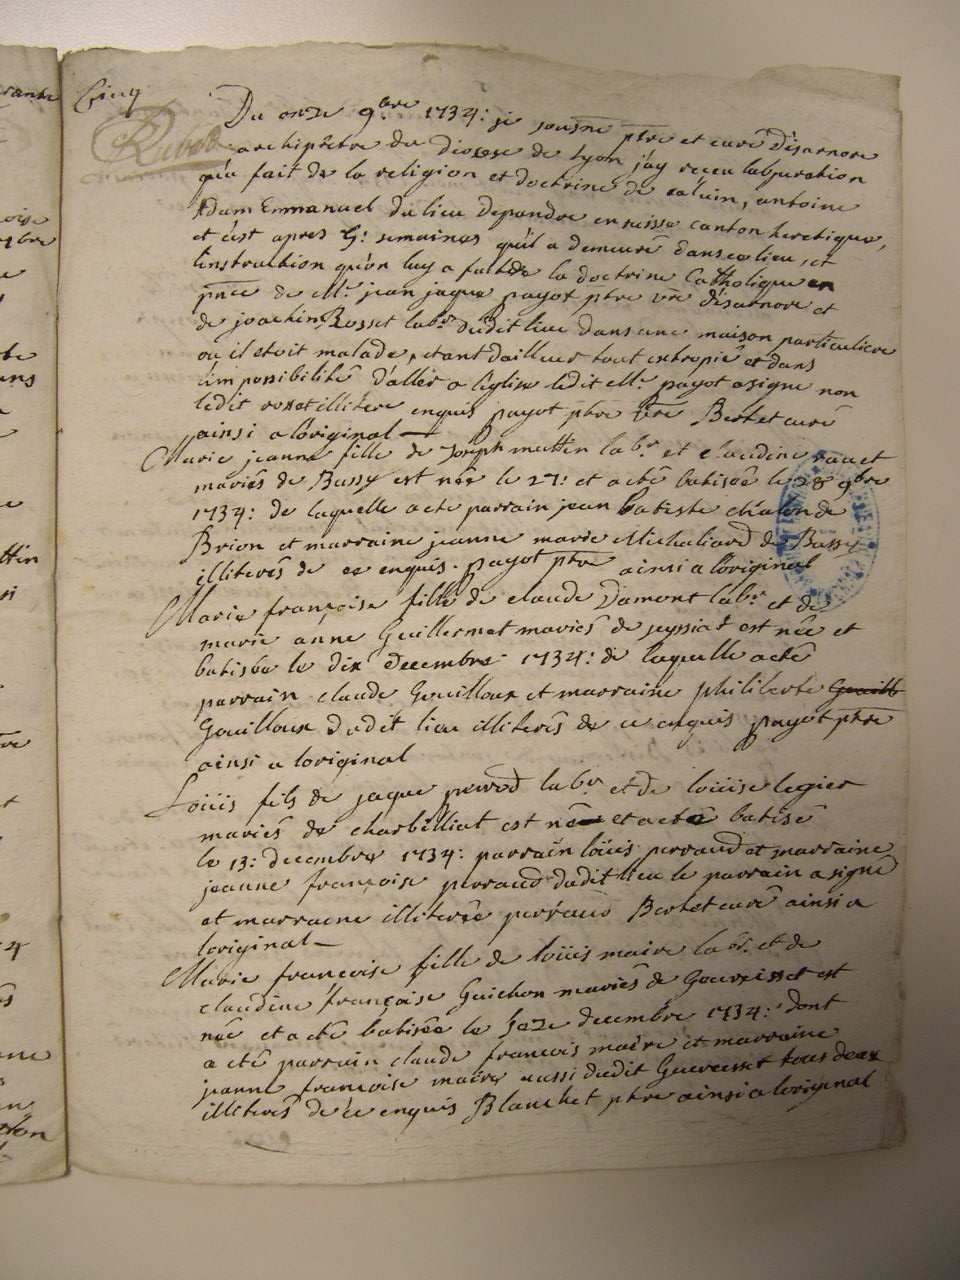 Cinq
Du onze 9bre 1734: je sousne ptre et curé d'isarnore
archiprêtre du diocese de Lyon j'ay receu labjuration
qu'a fait de la religion et doctrine de calvin, antoine
Adam Emmanuel du lieu depandre en suisse canton heretique,
et c'est apres 5: semaines qu'il a demeuré dans ce lieu, et
linstruction qu'on luy a fait de la doctrine Catholique en
pnce de Mr. jean jaque payot ptre vre d'isarnore et
de joachin Rosset labr dudit lieu dans une maison particuliere
ou il etoit malade, etant dailleur tout extropié et dans
limpossibilité d'aller a leglise ledit Mr. payot a signe non
ledit rosset illitere enquis payot ptre vre Bertet curé
ainsi a loriginal
Marie jeanne fille de Joseph mutten labr. et claudine ravet
mariés de Bussy est née le 27: et a eté batisée le 28 9bre
1734: de laquelle a ete parrain jean batiste chalon de
Brion et marraine jeanne marie Michaliard de Bussy
illiterés de ce enquis. payot ptre ainsi a loriginal
Marie françoise fille de claude Damont labr. et de
marie anne Guillermet mariés de peyssiat est née et
batisée le dix decembre 1734: de laquelle a eté
parrain claude Gouilloux et marraine philiberte
Gouilloux dudit lieu illiterés de ce enquis payot ptre
ainsi a loriginal
Loüis fils de jaque perrod labr. et de loüise legier
mariés de charbilliat est né et a eté batisé
le 13: decembre 1734: parrain loüis perraud et marraine
jeanne françoise perraud dudit lieu le parrain a signé
et marraene illiterée perraud Bertet curé ainsi a
loriginal
Marie françoise fille de loüis maire labr. et de
claudine françoise Guichon mariés de Gouvaisset est
née et a eté batisée le seze decembre 1734: dont
a eté parrain claude françois maire et marraine
jeanne françoise maire aussi dudit Guovesset tous deux
illiterés de ce enquis Blanchet ptre ainsi a loriginal